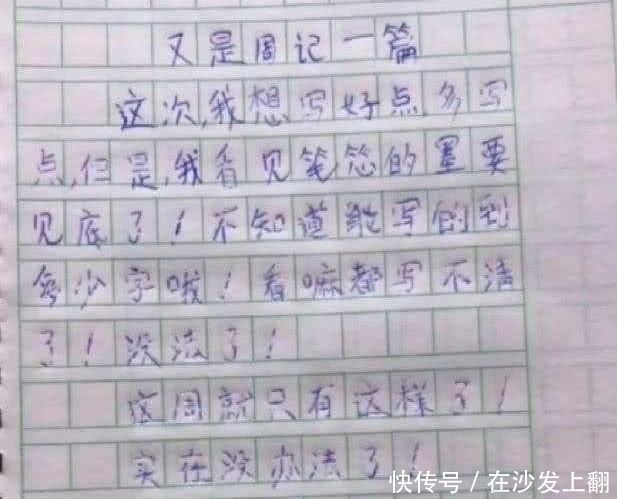 又是周记一篇
这次,我想写好点,多写
点,但是,我看见笔芯的墨要
见底了!不知道能写的到
多少字哦!看嘛都写不清
了!没法了!
这周就只有这样了!
实在没办法了!
快传号/在沙发上翻